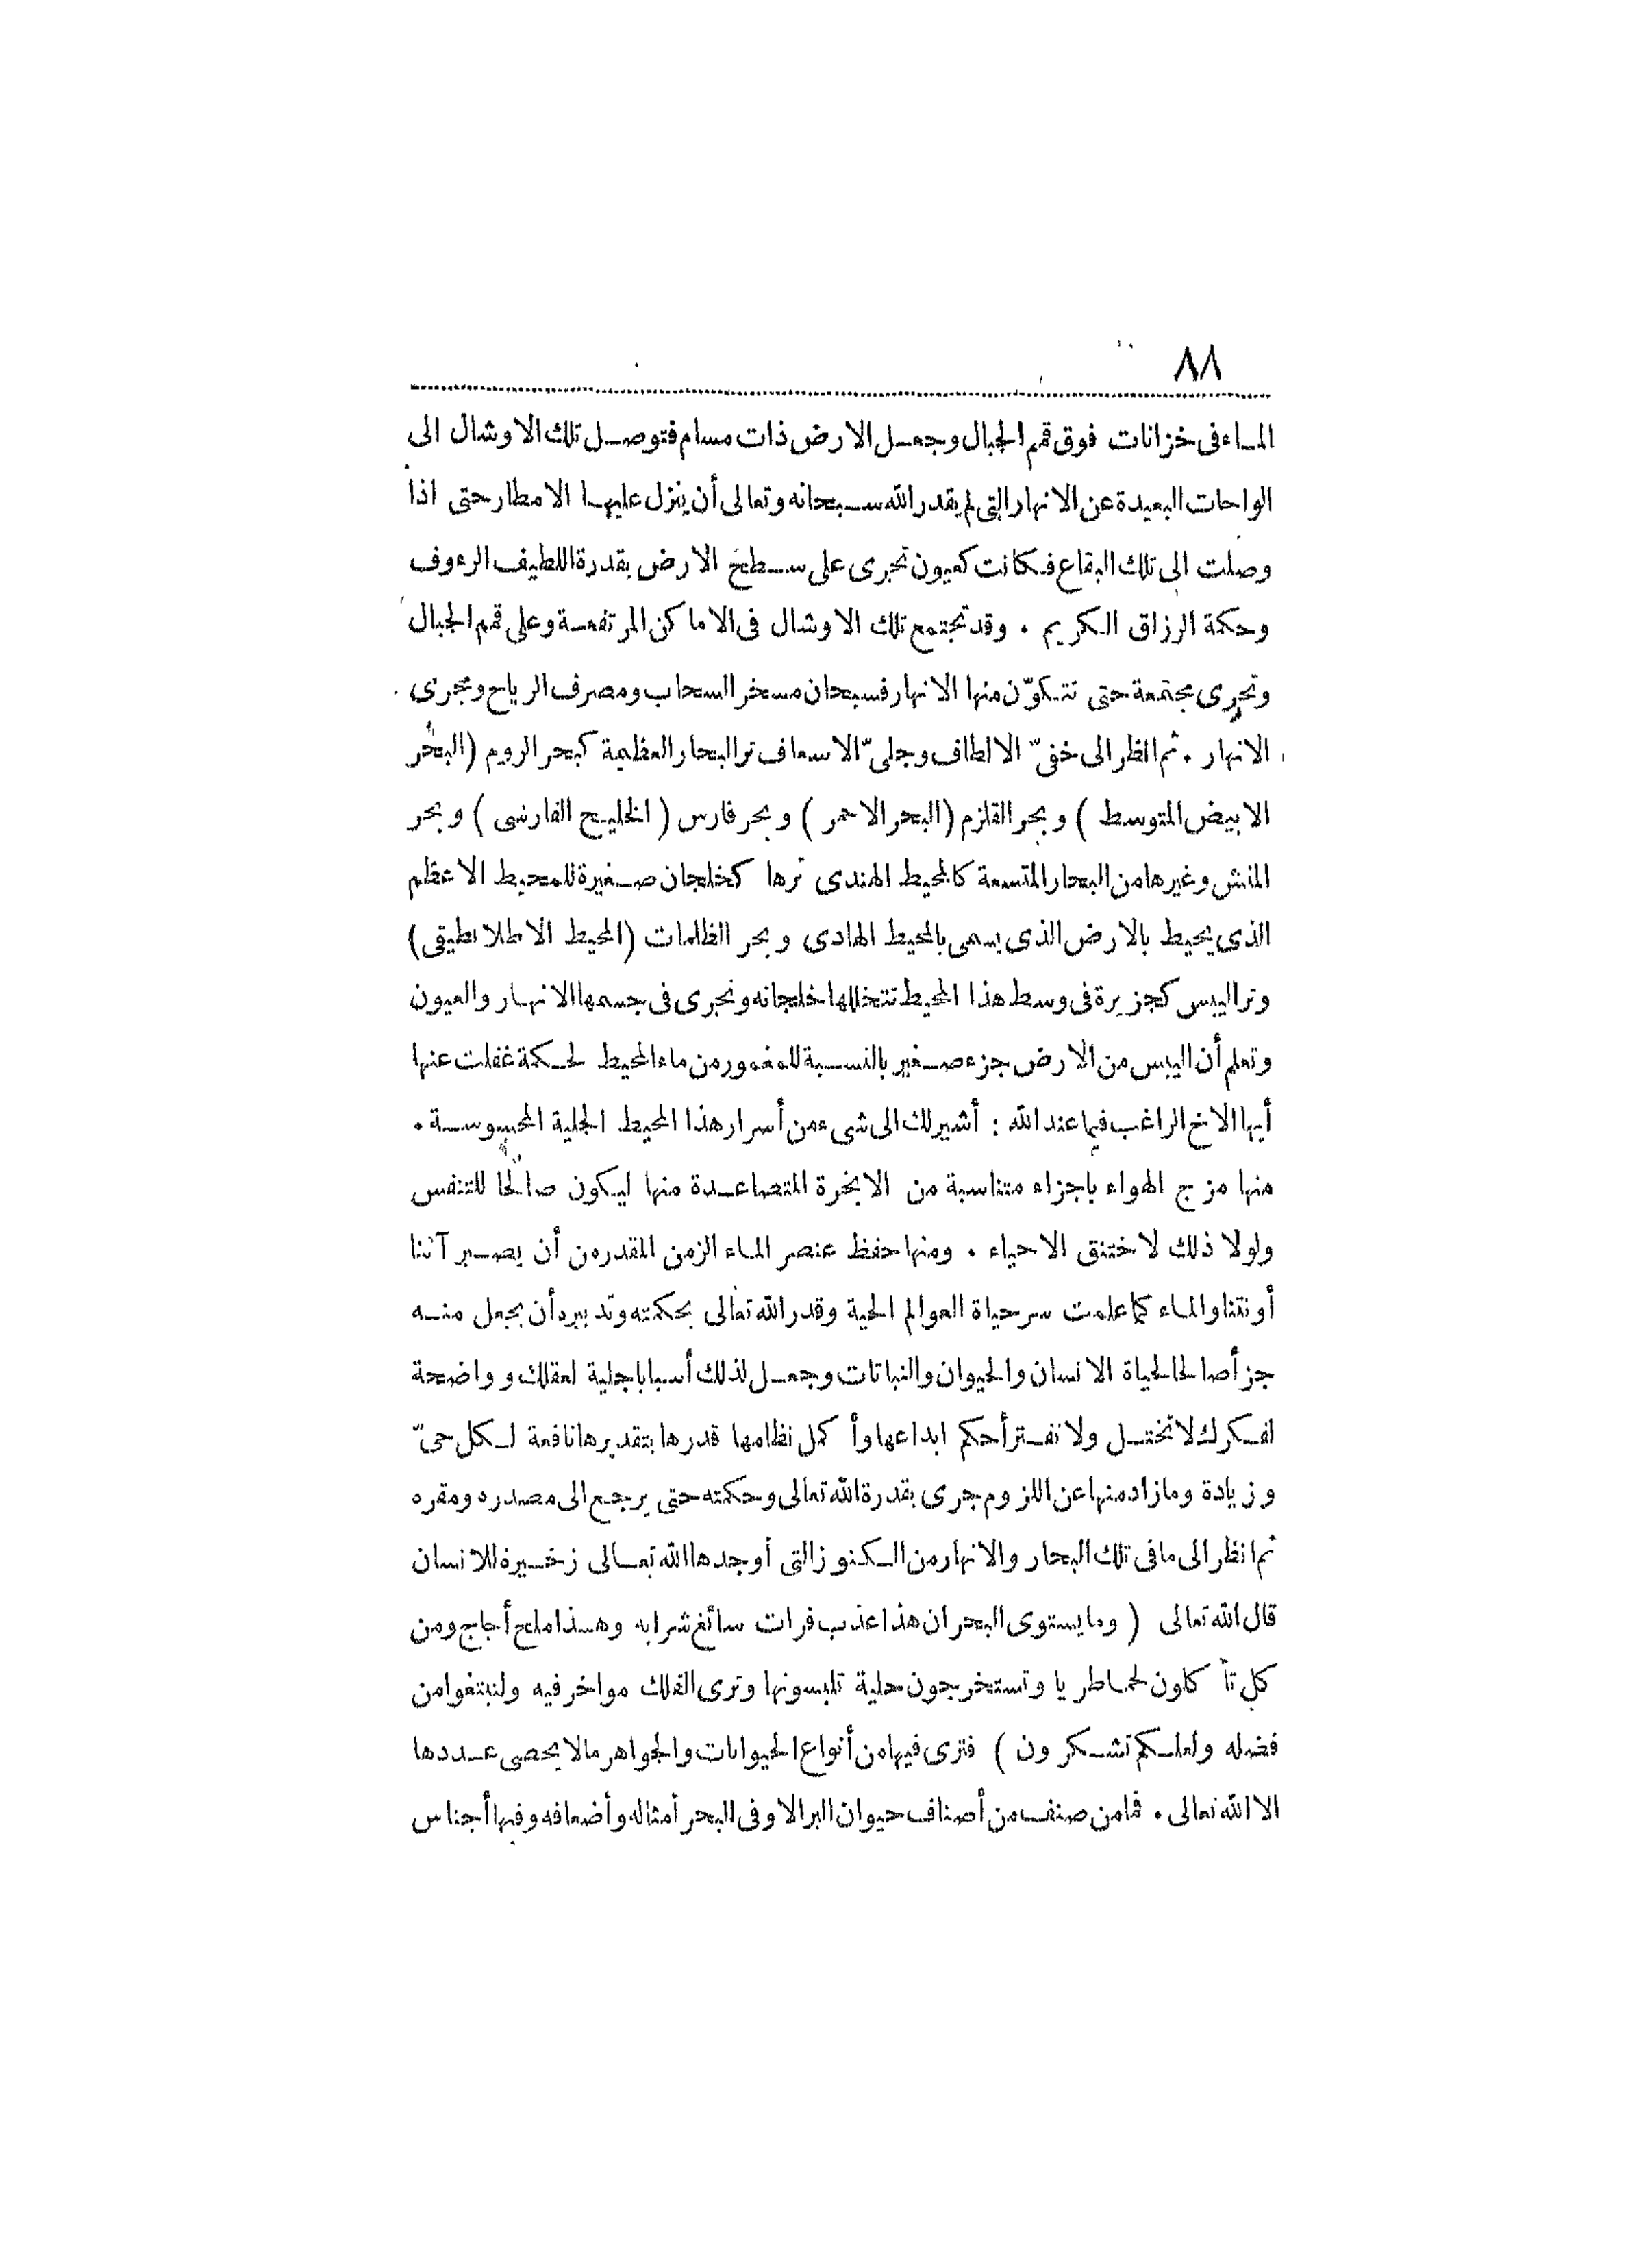 ٨٨
الماء فى خزانات فوق قمم الجبال وجعل الارض ذات مسام فتوصل تلك الاوشال الى
الواحات البعيدة عن الانهار التى لم يقدر الله سبحانه وتعالى أن ينزل عليها الامطار حتى اذا
وصلت الى تلك البقاع فكانت كعيون تجرى على سطح الارض بقدرة اللطيف الرءوف
وحكمة الرزاق الكريم . وقد تجتمع تلك الاوشال فى الاماكن المرتفعة وعلى قمم الجبال
وتجرى مجتمعة حتى تتكوّن منها الانهار فسبحان مسخر السحاب ومصرف الرياح ومجرى
الانهار . ثم انظر الى خفىّ الالطاف وجلىّ الاسعاف تر البحار العظيمة كبحر الروم (البحر
الابيض المتوسط ) وبحر القلزم (البحر الاحمر ) وبحر فارس ( الخليج الفارسى ) وبحر
المنش وغيرها من البحار المتسعة كالمحيط الهندى ترها كخلجان صغيرة للمحيط الاعظم
الذى يحيط بالارض الذى يسمى بالمحيط الهادى وبحر الظلمات (المحيط الاطلانطيقى)
وتر اليبس كجزيرة فى وسط هذا المحيط تتخللها خلجانه وتجرى فى جسمها الانهار والعيون
وتعلم أن اليبس من الارض جزء صغير بالنسبة للمغمور من ماء المحيط لحكمة غفلت عنها
أيها الاخ الراغب فيما عند الله : أشير لك الى شىء من أسرار هذا المحيط الجلية المحسوسة .
منها مزج الهواء باجزاء متناسبة من الابخرة المتصاعدة منها ليكون صالحا للتنفس
ولولا ذلك لاختنق الاحياء . ومنها حفظ عنصر الماء الزمن المقدر من أن يصير آسنا
أو نتنا والماء كما علمت سر حياة العوالم الحية وقدر الله تعالى بحكمته وتدبيره أن يجعل منه
جزأ صالحا لحياة الانسان والحيوان والنباتات وجعل لذلك أسبابا جلية لعقلك وواضحة
لفكرك لا تختل ولا تفتر أحكم ابداعها وأكمل نظامها قدرها بتقديرها نافعة لكل حىّ
وزيادة وما زاد منها عن اللزوم جرى بقدرة الله تعالى وحكمته حتى يرجع الى مصدره ومقره
ثم انظر الى ما فى تلك البحار والانهار من الكنوز التى أوجدها الله تعالى زخيرة للانسان
قال الله تعالى ( وما يستوى البحران هذا عذب فرات سائغ شرابه وهذا ملح أجاج ومن
كل تأكلون لحما طريا وتستخرجون حلية تلبسونها وترى الفلك مواخر فيه ولتبتغوا من
فضله ولعلكم تشكرون ) فترى فيها من أنواع الحيوانات والجواهر مالا يحصى عددها
الا الله تعالى . فما من صنف من أصناف حيوان البر الا وفى البحر أمثاله وأضعافه وفيها أجناس